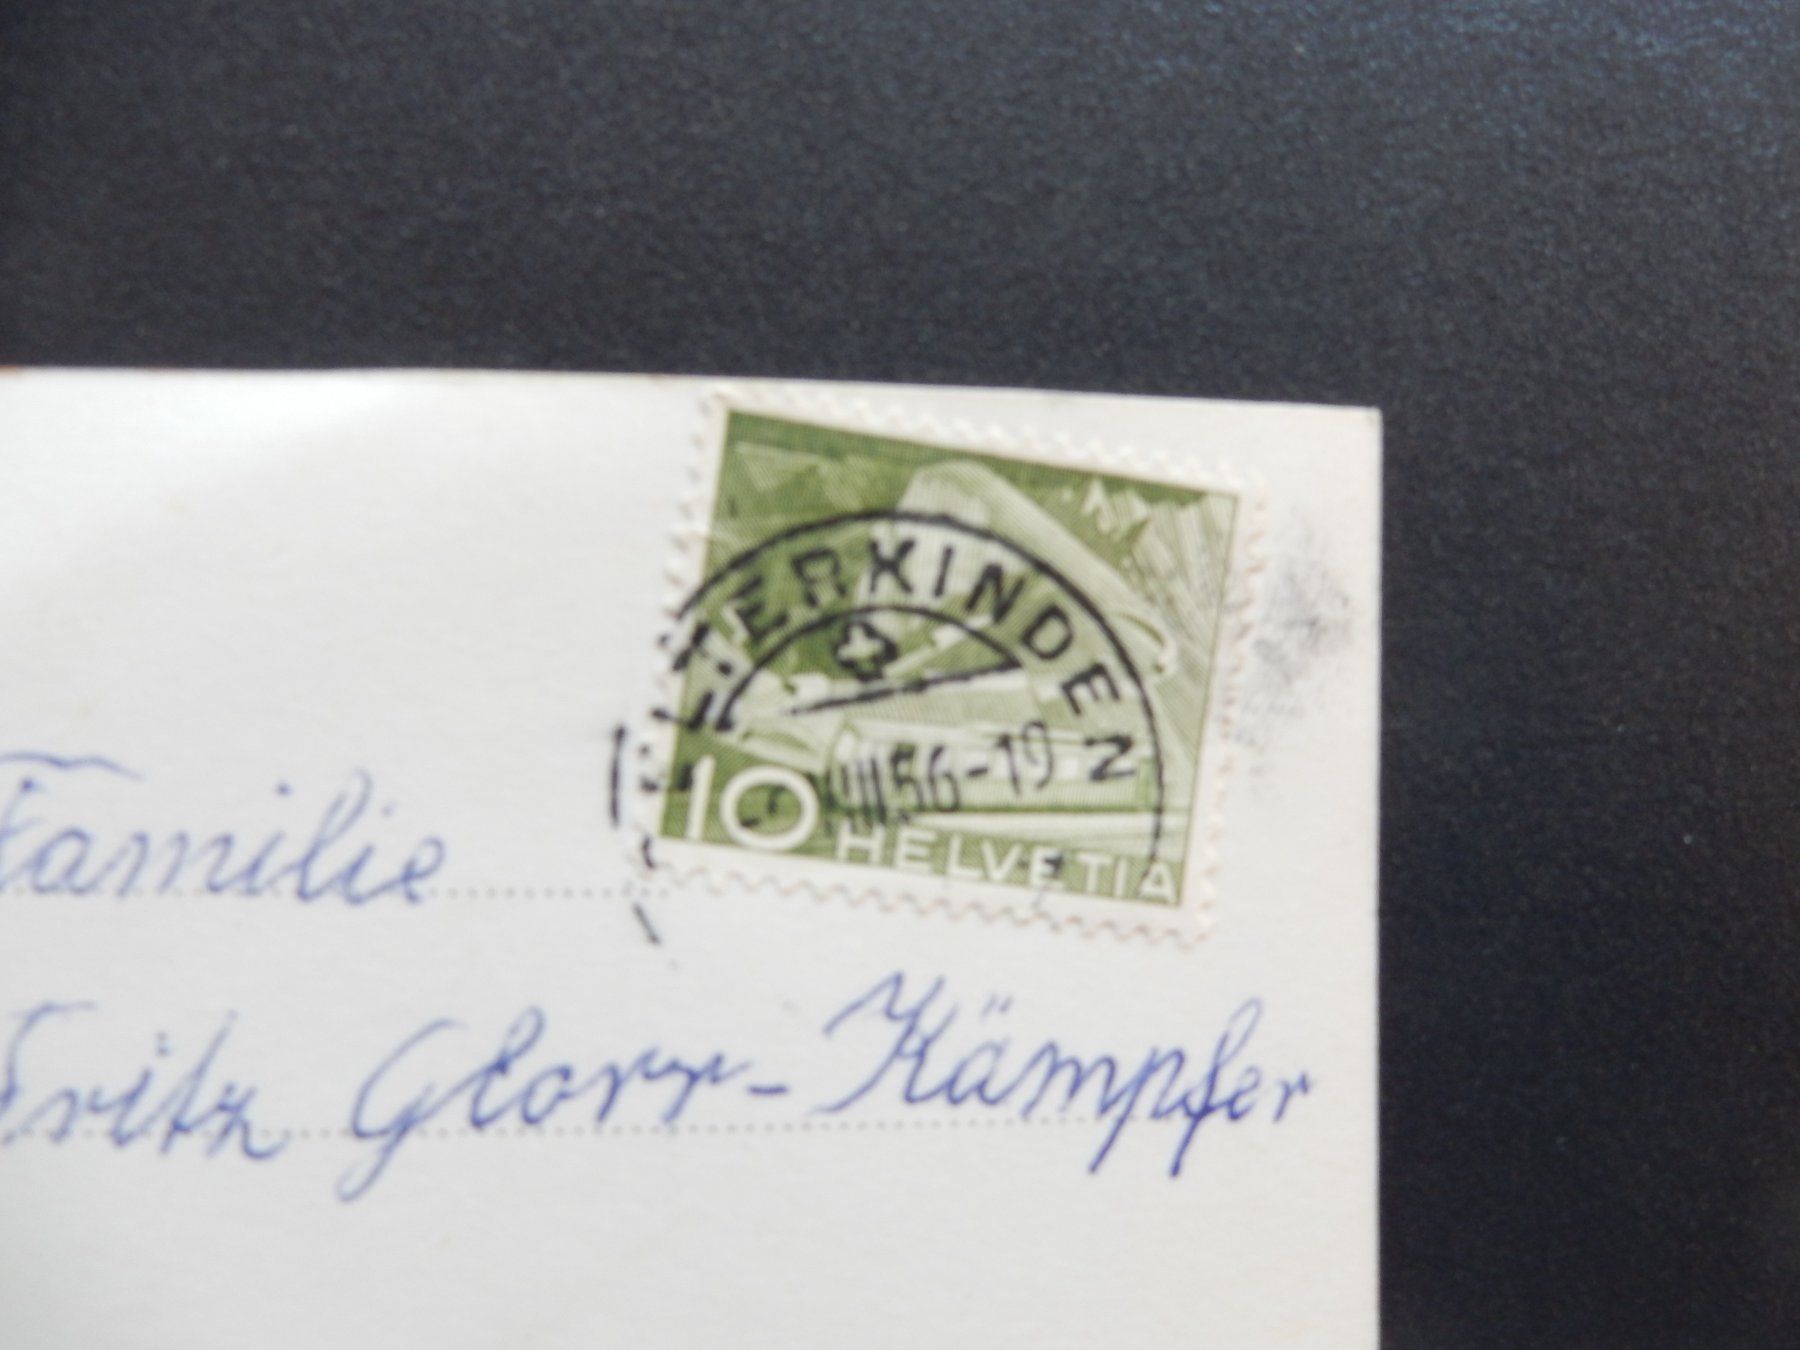 TERKINDEN
VIII.56-19
10 HELVETIA
Familie
Fritz Glorr-Kämpfer